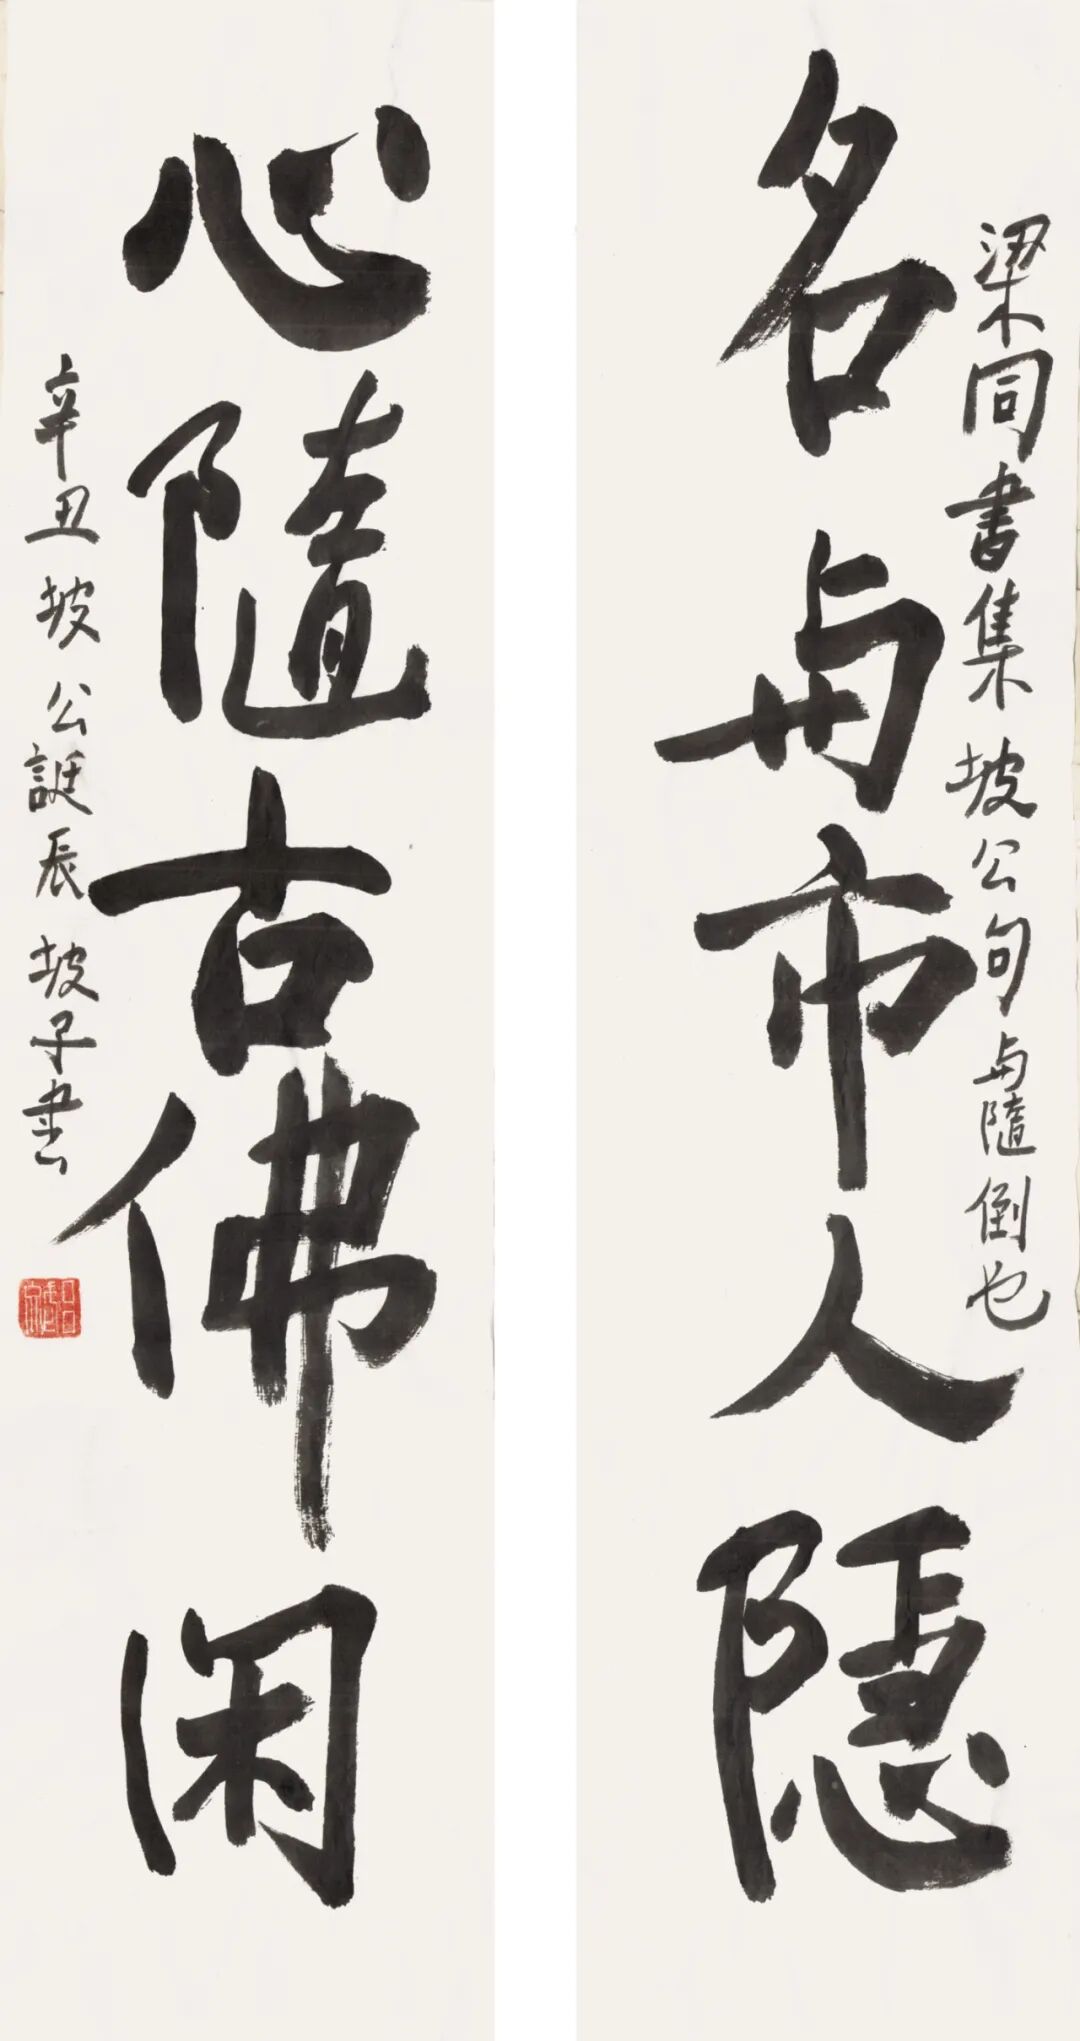 梁同書集坡公句与隨倒也
名与市人隱
心隨古佛闲
辛丑坡公誕辰坡子書